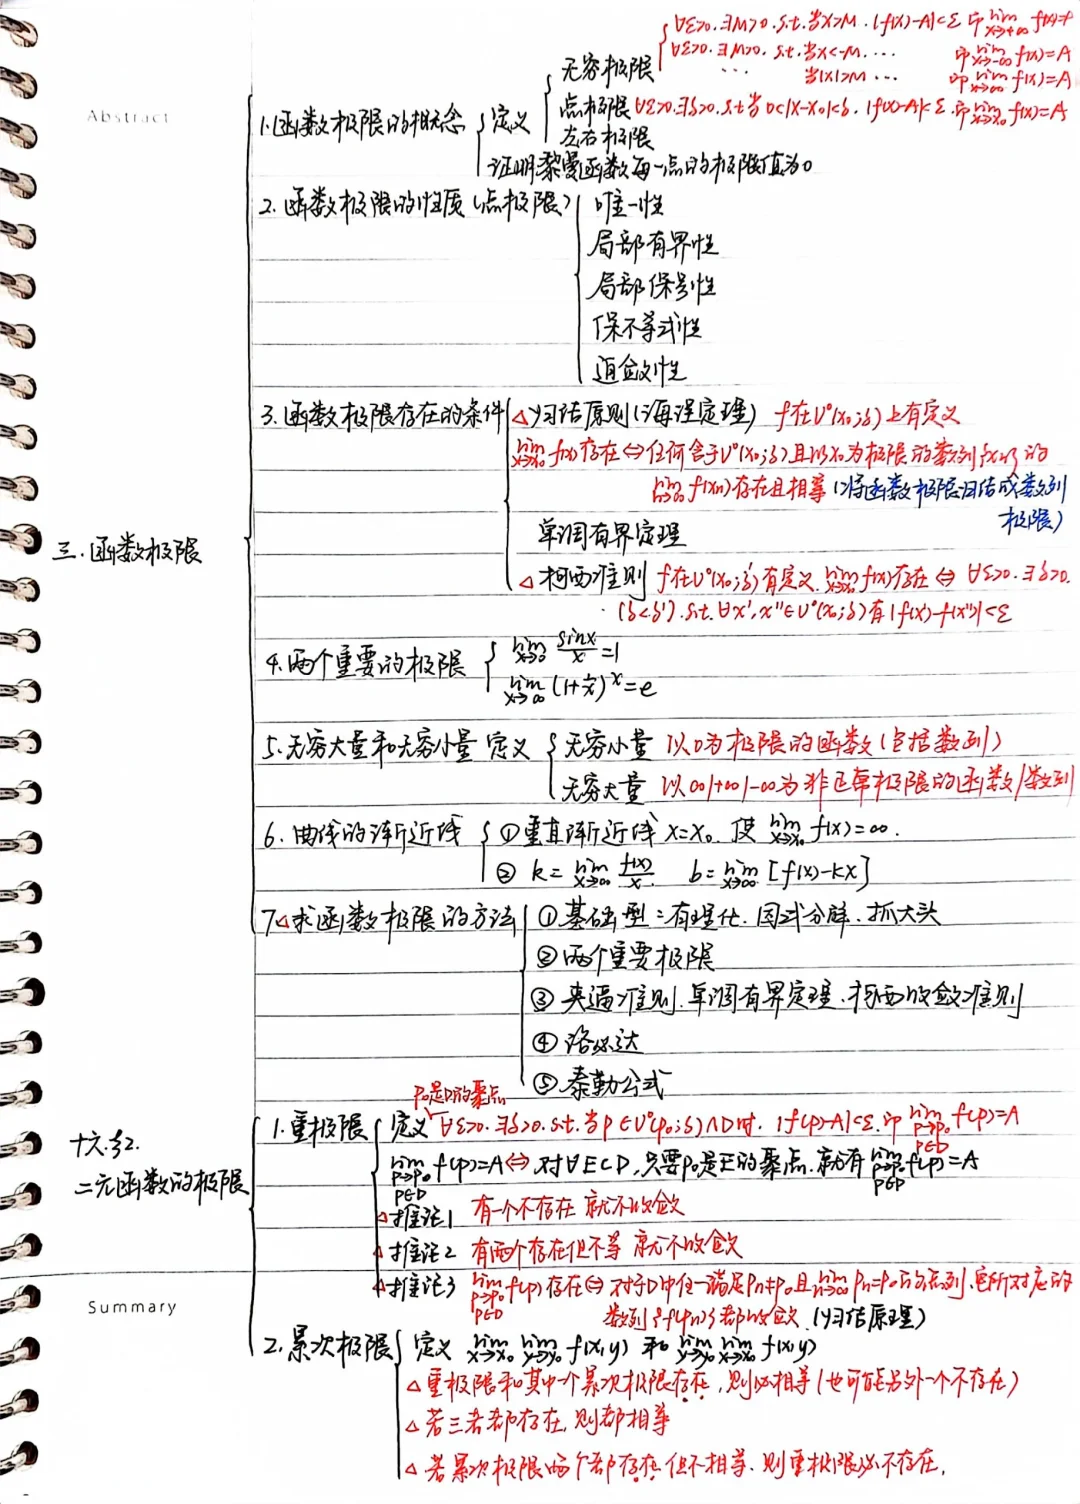 ∀ε>0.∃M>0.s.t.当x>M.|f(x)-A|<ε 即lim x→+∞ f(x)=A
∀ε>0.∃M>0.s.t.当x<-M.… 即lim x→-∞ f(x)=A
无穷极限 … 当|x|>M… 即lim x→∞ f(x)=A
Abstract
1.函数极限的概念 定义 点极限 ∀ε>0.∃δ>0.s.t当0<|x-x₀|<δ.|f(x)-A|<ε.即lim x→x₀ f(x)=A
左右极限
证明黎曼函数每一点的极限值为0
2.函数极限的性质(点极限) 唯一性
局部有界性
局部保号性
保不等式性
迫敛性
3.函数极限存在的条件 △归结原则(海涅定理) f在U°(x₀;δ)上有定义
lim x→x₀ f(x)存在⇔任何含于U°(x₀;δ)且以x₀为极限的数列{xn}的
lim n→∞ f(xn)存在且相等(将函数极限归结成数列
极限)
三.函数极限
单调有界定理
△柯西准则 f在U°(x₀;δ')有定义.lim x→x₀ f(x)存在⇔∀ε>0.∃δ>0.
(δ<δ').s.t.∀x',x''∈U°(x₀;δ)有|f(x')-f(x'')|<ε
4.两个重要的极限 lim x→0 sinx/x=1
lim x→∞ (1+1/x)^x=e
5.无穷大量和无穷小量 定义 无穷小量 以0为极限的函数(包括数列)
无穷大量 以∞/+∞/-∞为非正常极限的函数/数列
6.曲线的渐近线 ①垂直渐近线x=x₀.使lim x→x₀ f(x)=∞.
② k=lim x→∞ f(x)/x. b=lim x→∞ [f(x)-kx]
7△求函数极限的方法 ①基础型:有理化.因式分解.抓大头
②两个重要极限
③夹逼准则.单调有界定理.柯西收敛准则
④洛必达
⑤泰勒公式
P₀是D的聚点
1.重极限 定义 ∀ε>0.∃δ>0.s.t.当P∈U°(P₀;δ)∩D时.|f(P)-A|<ε.即lim P→P₀ P∈D f(P)=A
十六.§2.
二元函数的极限
lim P→P₀ P∈D f(P)=A⇔对∀E⊂D,只要P₀是E的聚点.就有lim P→P₀ P∈P f(P)=A
△推论1 有一个不存在 就不收敛
△推论2 有两个存在但不等 就不收敛
△推论3 lim P→P₀ P∈D f(P)存在⇔对于D中任一满足Pn≠P₀且lim n→∞ Pn=P₀的点列.它所对应的
数列{f(Pn)}都收敛.(归结原理)
Summary
2.累次极限 定义 lim x→x₀ lim y→y₀ f(x,y) 和 lim y→y₀ lim x→x₀ f(x,y)
△重极限和其中一个累次极限存在,则必相等(也可能另外一个不存在)
△若三者都存在,则都相等
△若累次极限两个都存在但不相等.则重极限必不存在.